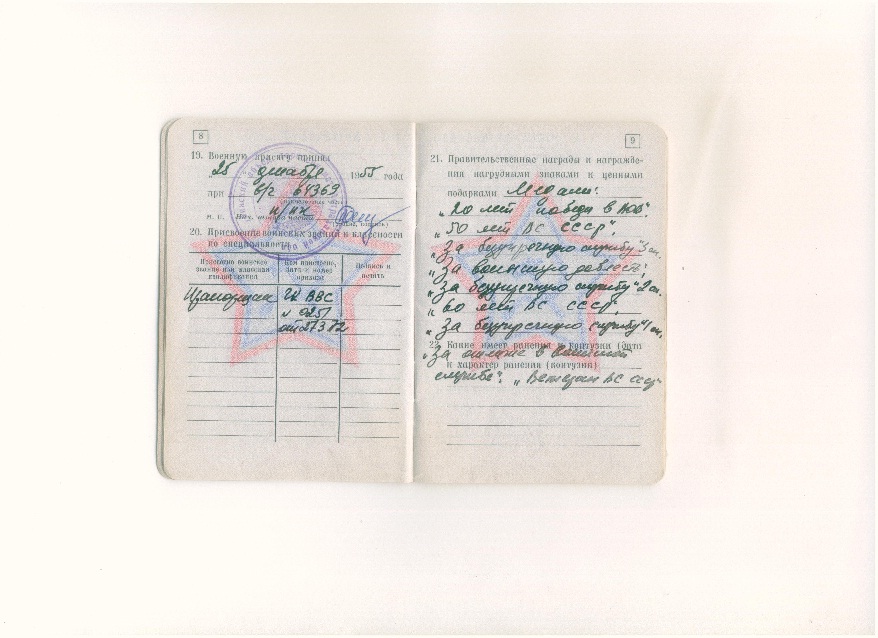 8
19. Военную присягу принял
25 декабря 1955 года
при в/ч 64369
м. п. Нач.
20. Присвоение воинских званий и классности
по специальности
Присвоено воинское
звание или классная
квалификация
Кем присвоено,
дата и номер
приказа
Подпись и
печать
ГК ВВС
N 0251
от 27 3 72
9
21. Правительственные награды и награжде-
ния нагрудными знаками и ценными
подарками Медали:
„20 лет победы в ВОВ".
„50 лет ВС СССР",
„За безупречную службу" 3 ст.
„За воинскую доблесть",
„За безупречную службу" 2 ст.
„60 лет ВС СССР",
„За безупречную службу" 1 ст.
22. Какие имеет ранения и контузии (дата
„За отличие в воинской
и характер ранения (контузии)
службе", „Ветеран ВС СССР"